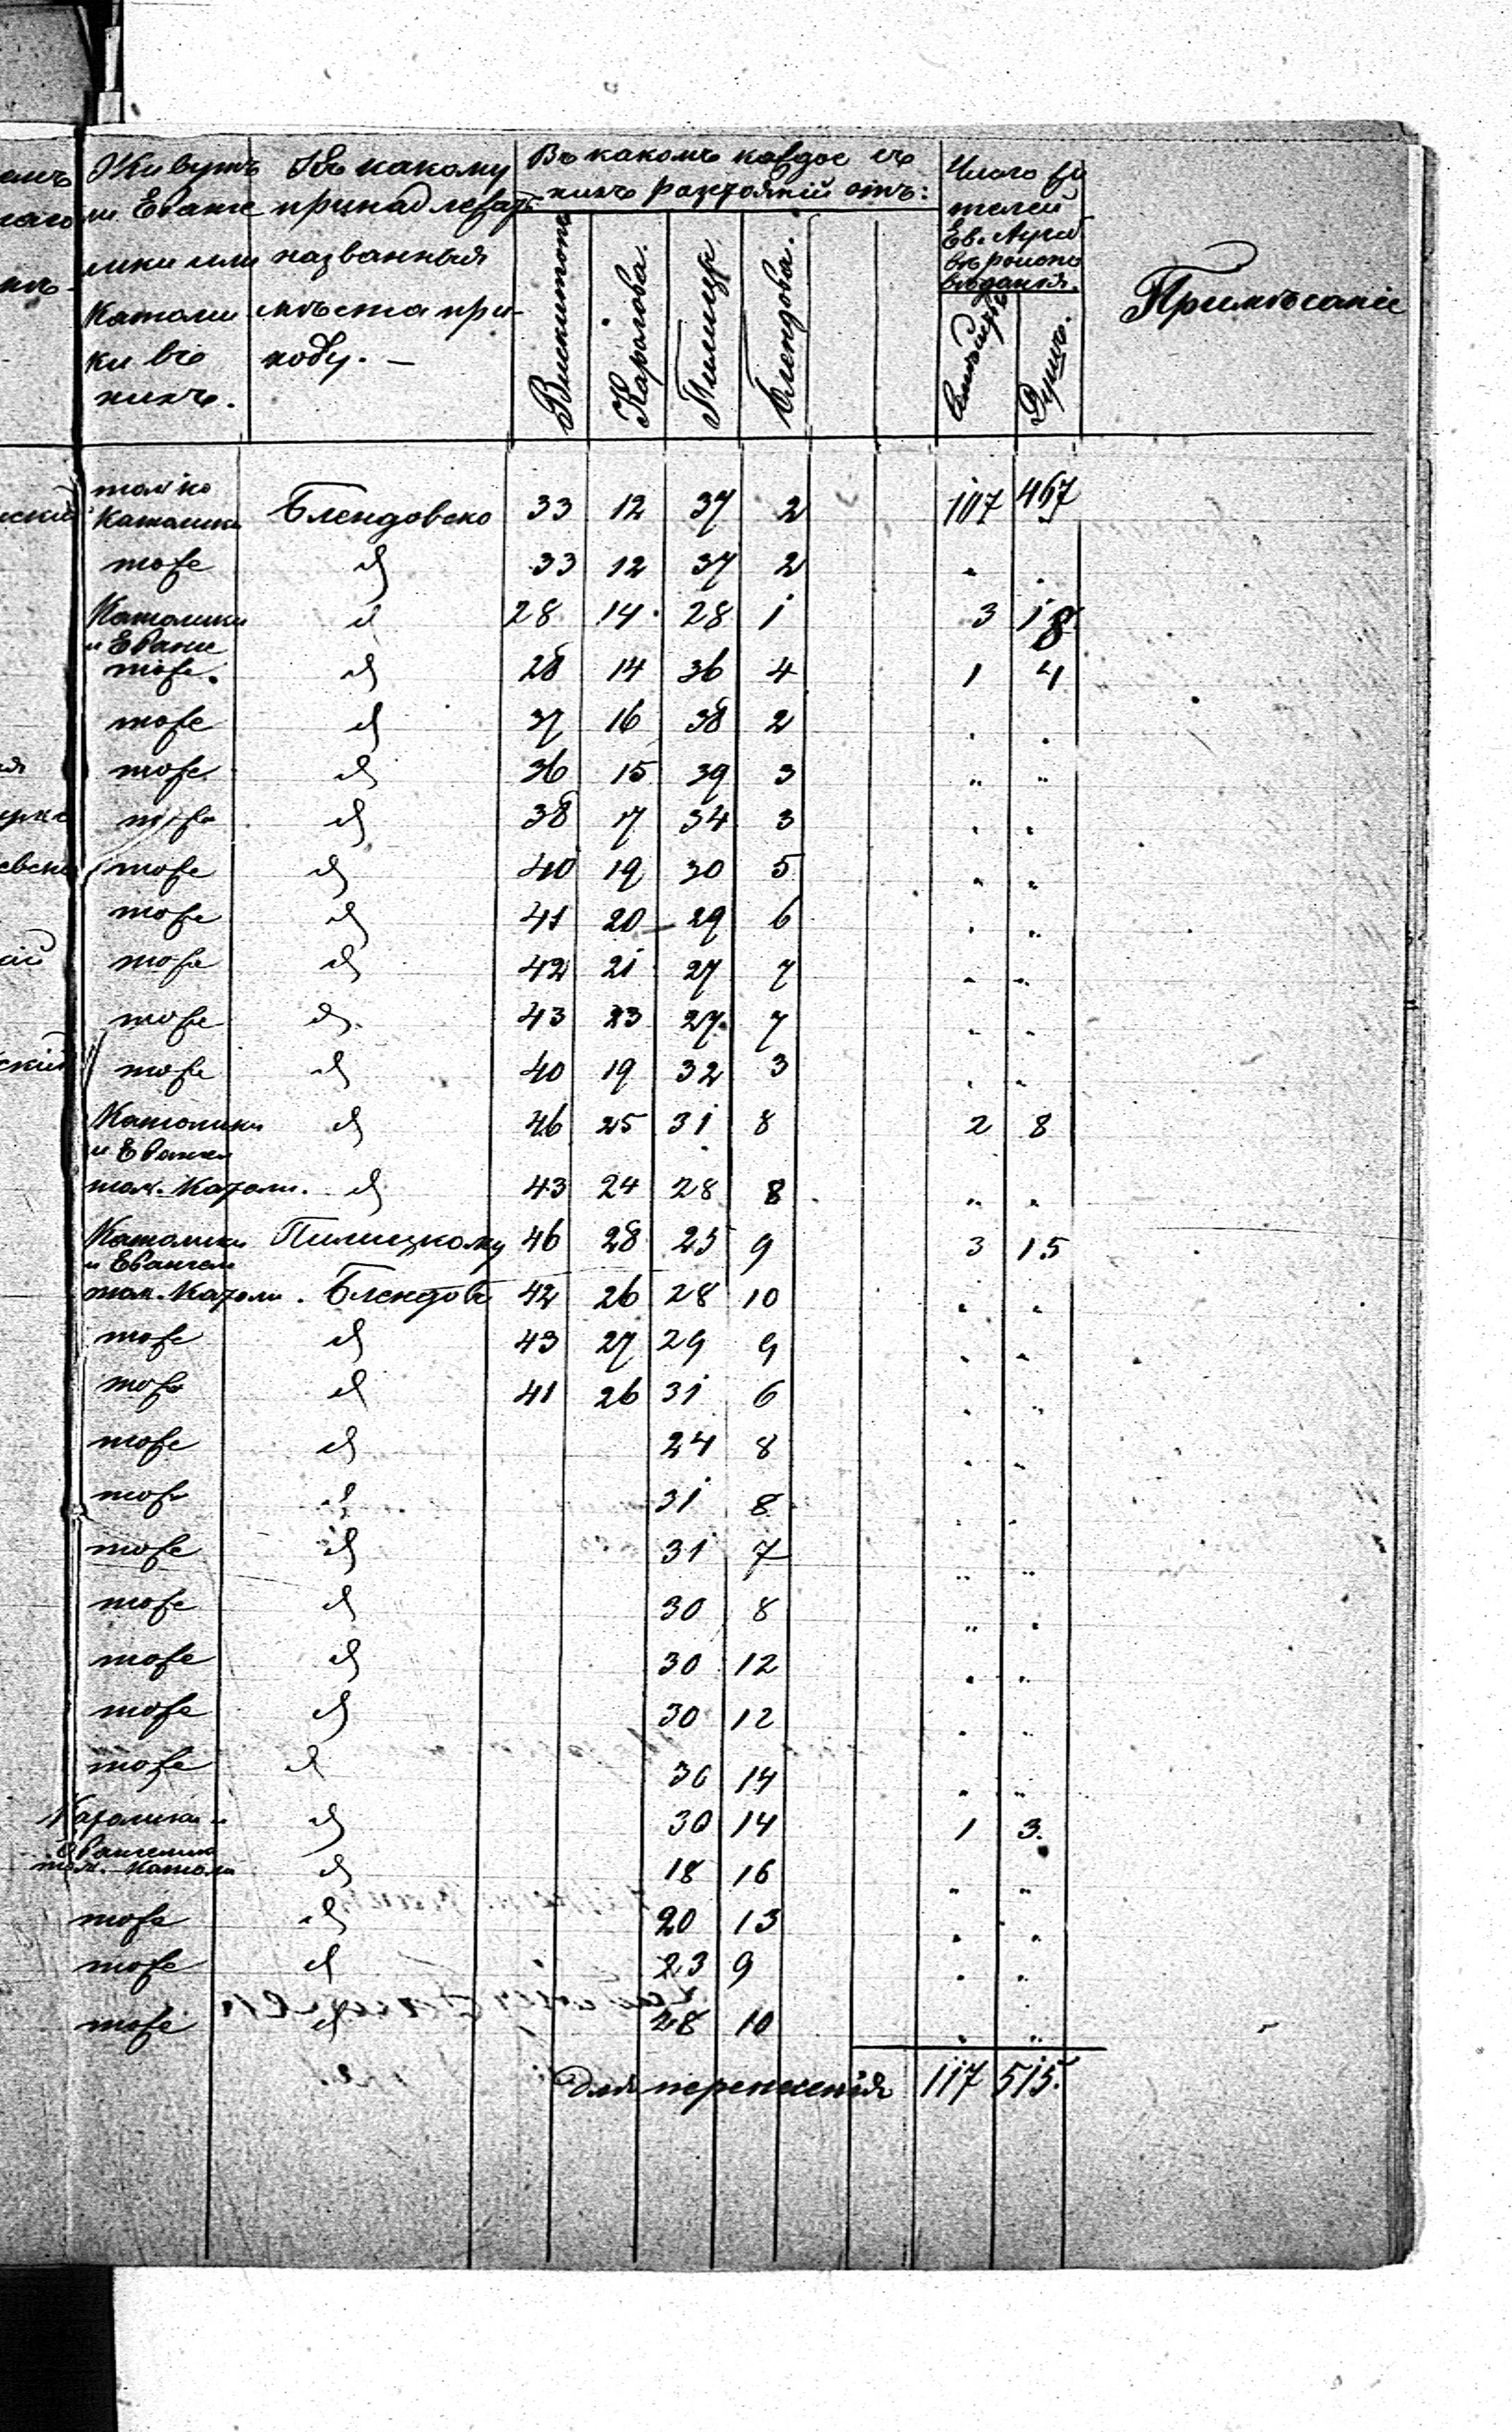 Живутъ
ли Еванге
лики или
Католи
ки въ
нихъ.
Къ какому
принадлежатъ
названныя
мѣста при-
ходу. —
Въ какомъ каждое съ
нихъ разстояніи отъ:
Вискитокъ
Каролова.
Пилицы
Блендова.
Число жи
телей
Ев. Аугсб.
вѣроиспо
вѣданія.
Семействъ
Душъ.
Примѣчаніе
только
Католики Блендовско 33 12 37 2 107 467
тоже d 33 12 37 2 " "
Католики d 28 14 28 1 3 18
и Еванг
тоже. d 28 14 36 4 1 4
тоже d 37 16 38 2 " "
тоже d 36 15 39 3 " "
тоже d 38 17 34 3 " "
тоже d 40 19 30 5 " "
тоже d 41 20 — 29 6 " "
тоже d 42 21 27 7 " "
тоже d. 43 23 27 7 " "
тоже d 40 19 32 3 " "
Католики d 46 25 31 8 2 8
и Евангел
тол. Катол. d 43 24 28 8 " "
Католики Пилицкому 46 28 25 9 3 15
и Евангел
тол. Катол. Блендов 42 26 28 10 " "
тоже d 43 27 29 9 " "
тоже d 41 26 31 6 " "
тоже d 24 8 " "
тоже d 31 8 " "
тоже d 31 7 " "
тоже d 30 8 " "
тоже d 30 12 " "
тоже d 30 12 " "
тоже d 30 14 " "
Католики и d 30 14 1 3.
Евангелики
тол. Катол d 18 16 " "
тоже d 20 13 " "
тоже d 23 9 " "
тоже d 28 10 " "
Для перенесенія 117 515.